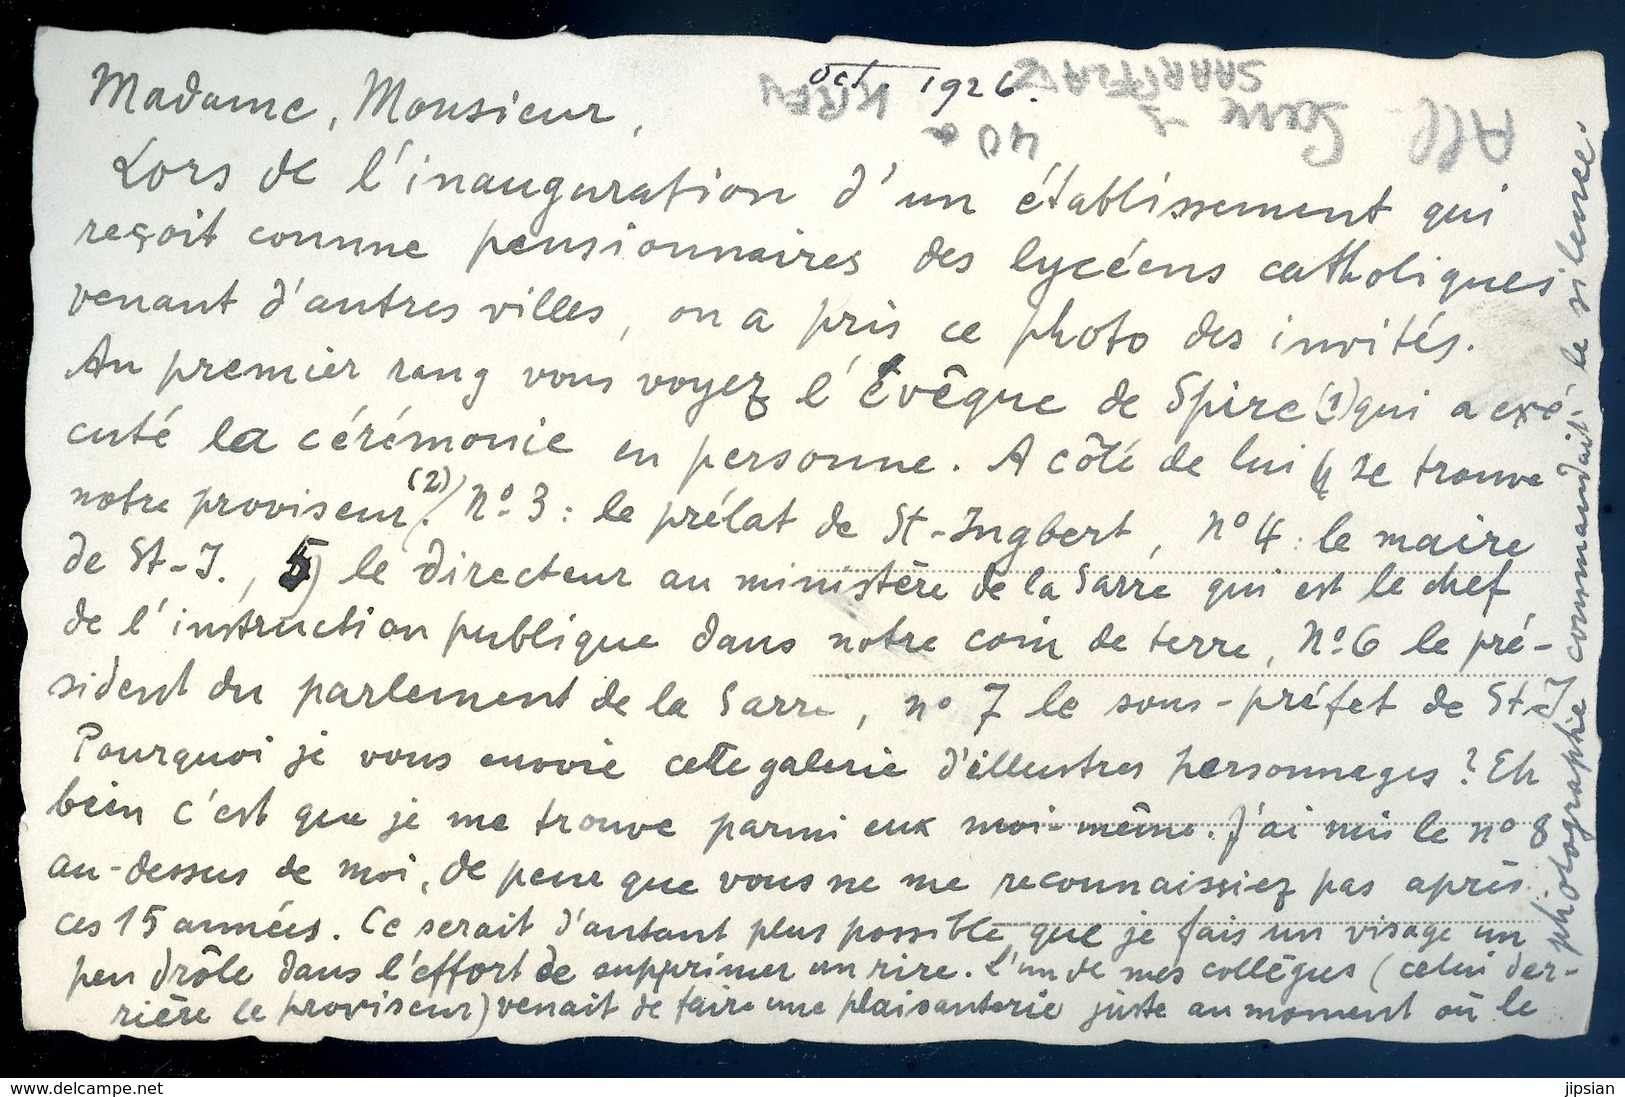 Oct 1926.
All. Sarre
SAARPFALZ
40
Madame, Monsieur,
Lors de l'inauguration d'un établissement qui
reçoit comme pensionnaires des lycéens catholiques
venant d'autres villes, on a pris ce photo des invités.
Au premier rang vous voyez l'Evêque de Spire (1) qui a exé-
cuté la cérémonie en personne. A côté de lui se trouve
notre proviseur (2). No 3 : le prélat de St-Ingbert, No 4 : le maire
de St-I., 5) le directeur au ministère de la Sarre qui est le chef
de l'instruction publique dans notre coin de terre, No 6 le pré-
sident du parlement de la Sarre, no 7 le sous-préfet de St-I
Pourquoi je vous envoie cette galerie d'illustres personnages ? Eh
bein c'est que je me trouve parmi eux moi-même. J'ai mis le no 8
au-dessus de moi, de peur que vous ne me reconnaissiez pas après
ces 15 années. Ce serait d'autant plus possible que je fais un visage un
peu drôle dans l'effort de supprimer un rire. L'un de mes collègues (celui der-
rière le proviseur) venait de faire une plaisanterie juste au moment où le
photographie commandait le silence.
www.delcampe.net
jipsian